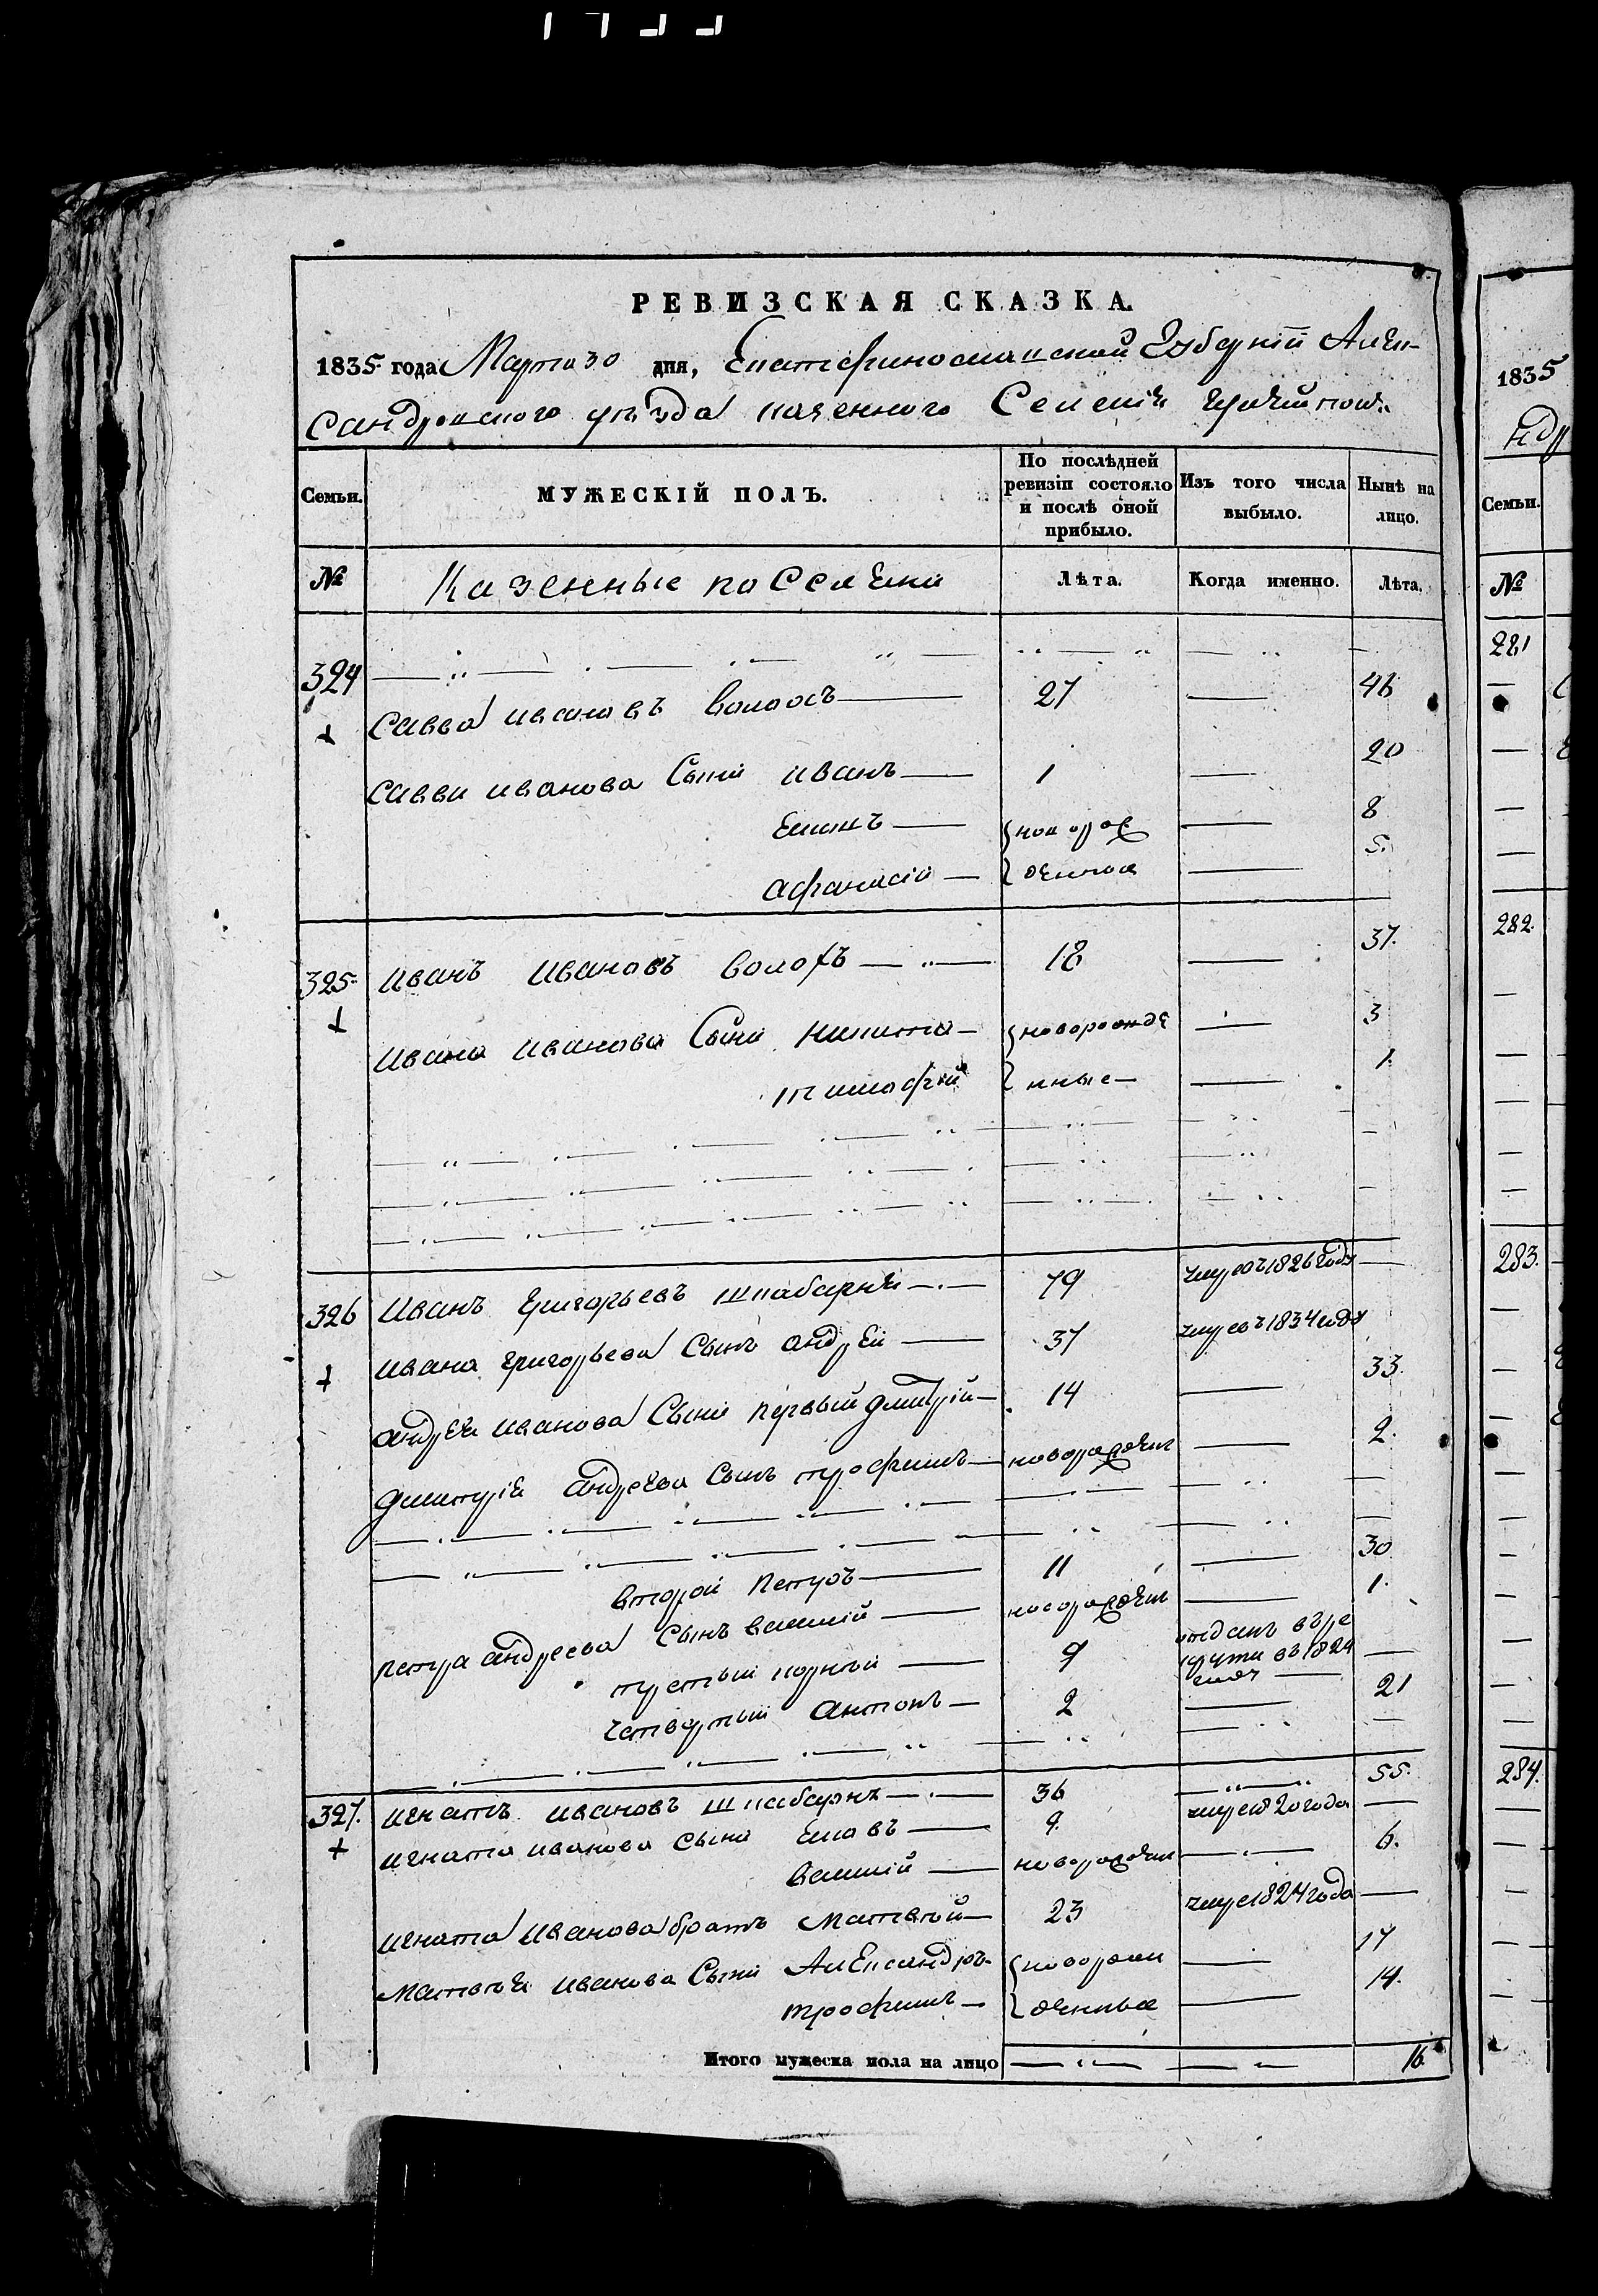 РЕВИЗСКАЯ СКАЗКА.
1835 года Марта 30 дня, Екатеринославской Губерніи Алек-
сандровского уѣзда казенного Селенія
Семьи. МУЖЕСКІЙ ПОЛЪ. По послѣдней ревизіи состояло и послѣ оной прибыло. Изъ того числа выбыло. Нынѣ на лицо.
№ Казенные поселяни Лѣта. Когда именно. Лѣта.
324 Савва Ивановъ Волохъ 27 46
Савви Иванова Сыни Иванъ 1 20
новорож 8
Афанасій денные 5.
325 Иванъ Ивановъ Волохъ 18 37.
Ивана Иванова Сыни Никита новорожде 3
тимофѣй нные 1.
326 Иванъ Григорьевъ Шкабарня 79 умре въ 1826 году
Ивана Григорьева Сынъ андрей 37 умре въ 1834 году
андрея Иванова Сыни первый дмитрій 14 33.
дмитрія андреева Сынъ трофимъ новорожден 2.
второй Петръ 11 30
Петра андреева Сынъ василій новорожден 1.
третьй корнѣй 9 отданъ въ ре
круты въ 1824
году
четвертый антонъ 2 21
327. Игнатъ Ивановъ Шкабарня 36 55.
Игната Иванова Сыни 9. умре 1820 года
василій новорожден 6.
Игната Иванова братъ Матвѣй 23 умре 1824 года
Матвѣя Иванова Сыни Александръ новорож 17
трофимъ денные 14.
Итого мужеска пола на лицо 16
1835
Семьи.
№
281
282.
283.
284.